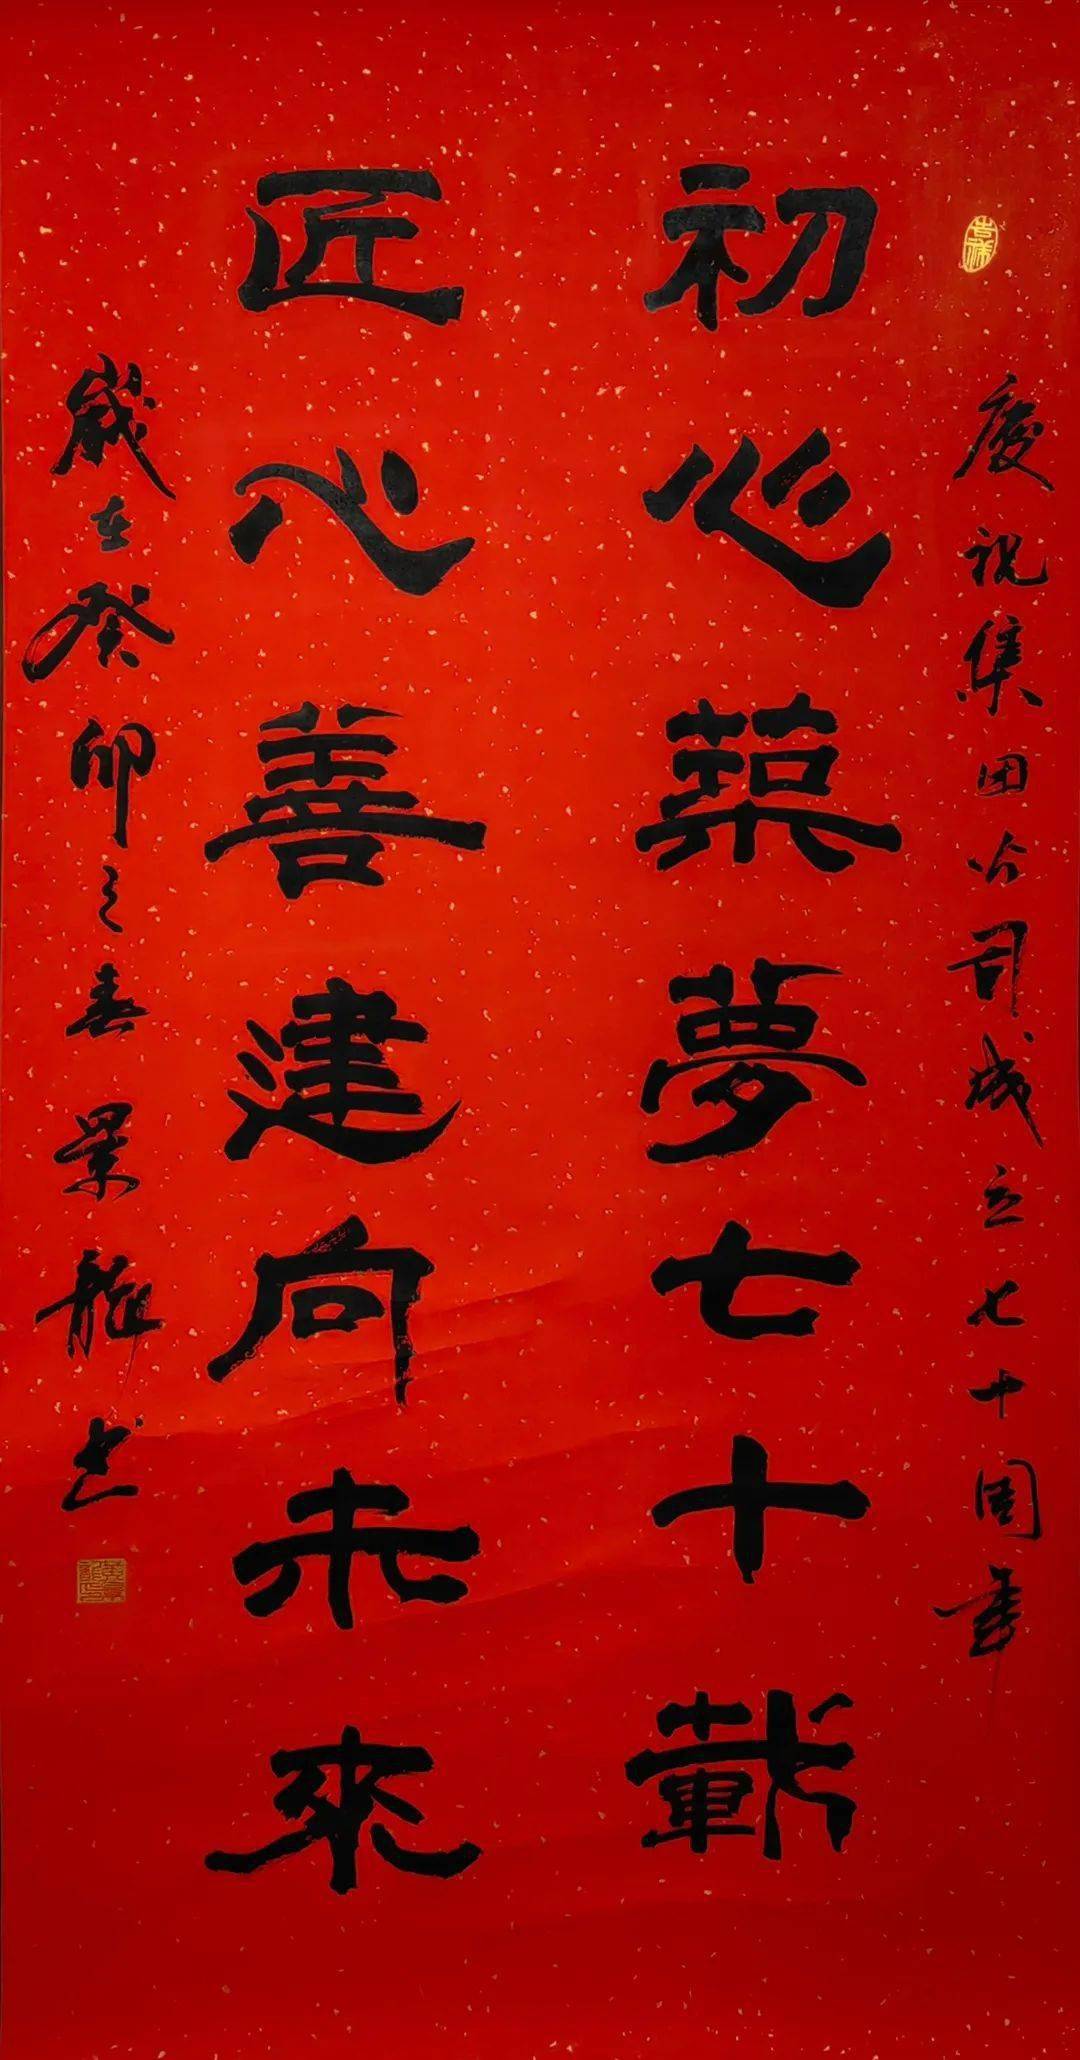 慶祝集團公司成立七十周年
初心築夢七十載
匠心善建向未來
歲在癸卯之春景龍书